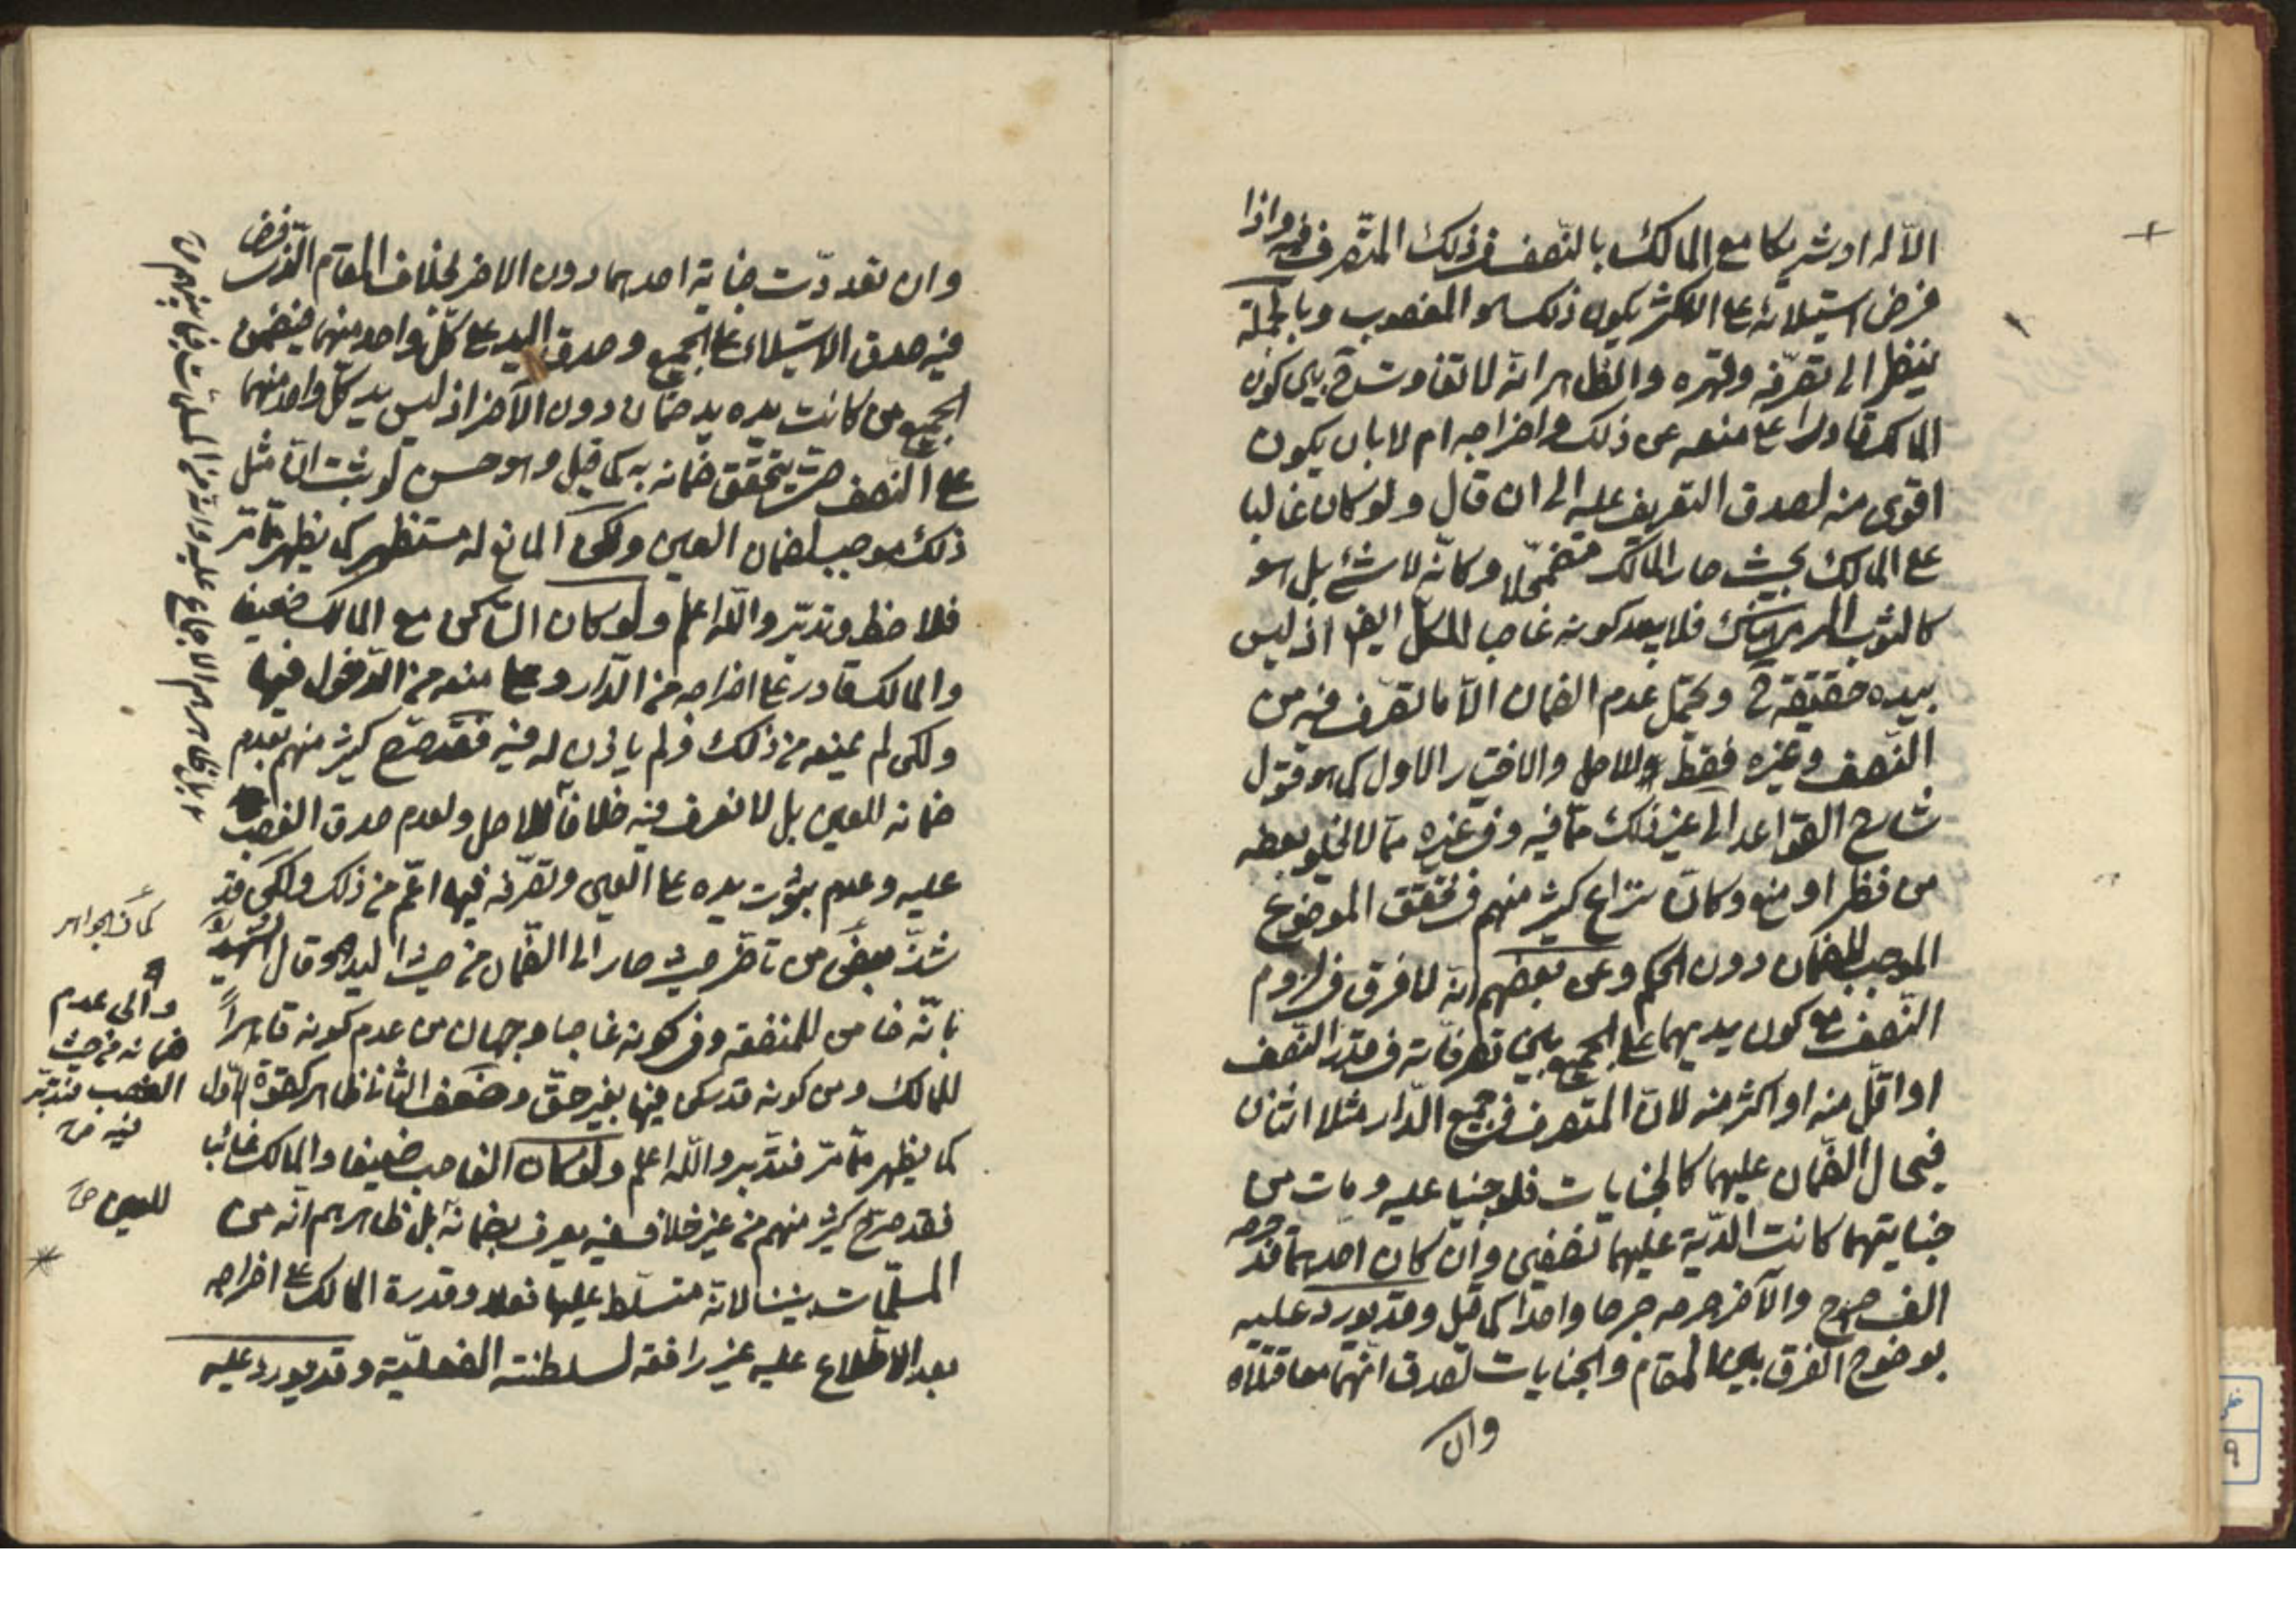 الّا له او شريكا مع المالك بالنّصف فى ذلك المتصرف فيه واذا
فرض استيلائه على الاكثر يكون ذلك هو المغصوب وبالجملة
ينظر الى تصرّفه وقهره والظاهر انّه لا تفاوت ح بين كون
المالك قادرا على منعه عن ذلك واخراجه ام لا بان يكون
اقوى منه لصدق التعريف عليه الى ان قال ولو كان غالبا
على المالك بحيث صار المالك مضمحلّا وكانّه لا شئ بل هو
كالثوب فلا يبعد كونه غاصبا للكلّ ايضا اذ ليس
بيده حقيقة ح ويحتمل عدم الضمان الّا ما تصرّف فيه من
النّصف وغيره فقط للاصل والاختيار الاول كما هو قول
شارح القواعد الى غير ذلك ممّا فيه وفى غيره ممّا لا يخلو بعضه
من نظر او منع وكانّ نزاع كثير منهم فى تحقق الموضوع
الموجب للضمان دون الحكم وعن بعضهم انّه لا فرق فى لزوم
النّصف مع كون يديهما على الجميع بين تصرفاته فى قدر النّصف
او اقلّ منه او اكثر منه لانّ المتصرف فى جميع الدّار مثلا اثنان
فيحال الضّمان عليهما كالجنايات فلو جنيا عليه ومات من
جنايتهما كانت الدّية عليهما نصفين وان كان احدهما قد جرحه
الف جرح والآخر جرحه جرحا واحدا كما قيل وقد يورد عليه
بوضوح الفرق بين المقام والجنايات لصدق انّهما معا قتلاه
وان
وان تعددّت جناية احدهما دون الاخر بخلاف المقام الّذى فرض
فيه صدق الاستيلاء على الجميع وصدق اليد على كلّ واحد منهما فيضمن
الجميع من كانت يده يد ضمان دون الآخر اذ ليس يد كلّ واحد منهما
على النّصف حتى يتحقق ضمانه به كما قيل وهو حسن لو ثبت انّ مثل
ذلك موجب لضمان العين ولكن المانع له مستظهر كما يظهر ممّا مرّ
فلاحظ وتدبّر واللّه اعلم ولو كان السّاكن مع المالك ضعيفا
والمالك قادر على اخراجه من الدّار وعلى منعه من الدّخول فيها
ولكن لم يمنعه من ذلك ولم ياذن له فيه فقد صرّح كثير منهم بعدم
ضمانه للعين بل لا نعرف فيه خلافا للاصل ولعدم صدق الغصب
عليه وعدم ثبوت يده على العين وتصرّفه فيها اعمّ من ذلك ولكن قد
شذّ بعض من تاخّر حيث صار الى الضّمان من حيث اليد وقال الشهيد
بانّه ضامن للمنفعة وفى كونه غاصبا وجهان من عدم كونه قاهراً
للمالك ومن كونه قد سكن فيها بغير حقّ وضعف الثانى ظاهر كقوّة الاوّل
كما يظهر ممّا مرّ فتدّبر واللّه اعلم ولو كان الغاصب ضعيفا والمالك غائب
فقد صرّح كثير منهم من غير خلاف فيه يعرف بضمانه بل ظاهرهم انّه من
المسلّمات بيننا لانّه متسلّط عليها فعلا وقدرة المالك على اخراجه
بعد الاطّلاع عليه غير رافعة لسلطنته الفعليّة وقد يورد عليه
كما فى الجواهر
والى عدم
ضمانه من حيث
الغصب فتدبّر
فيه صح
للعين صح